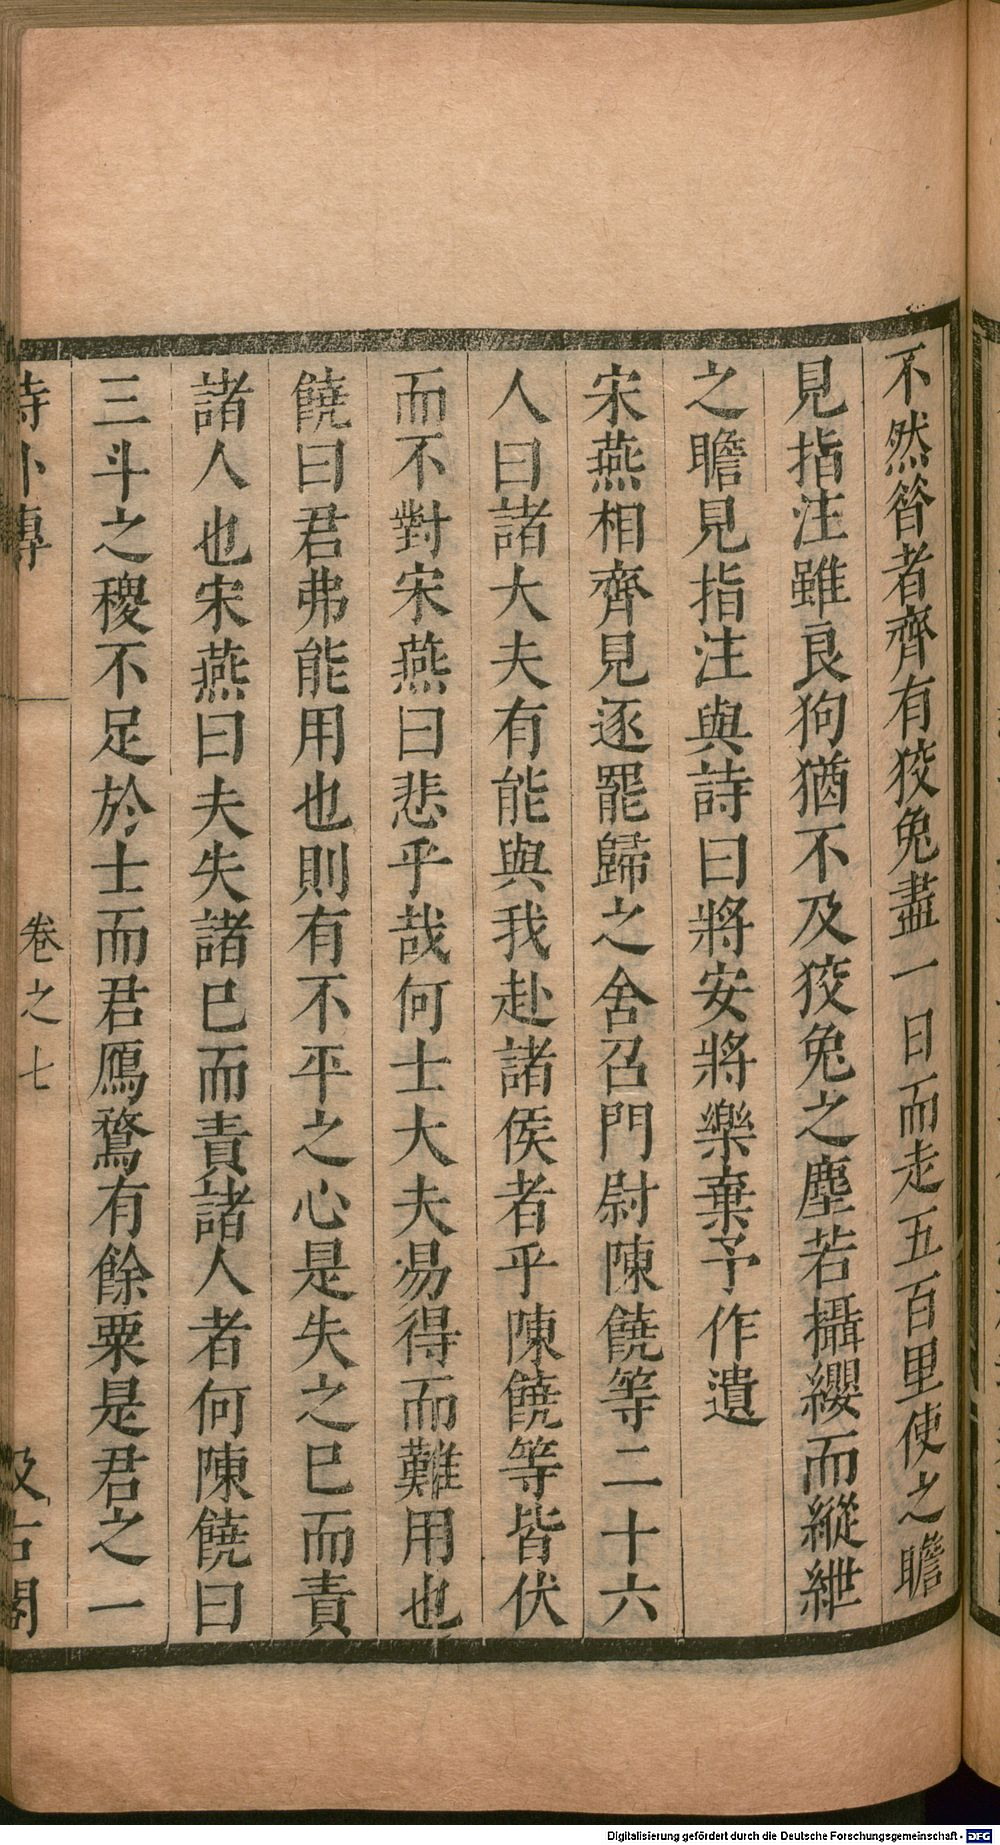 不然昝者齊有狡兔盡一日而走五百里使之瞻
見指注雖良狗猶不及狡兔之塵若攝纓而縱紲
之瞻見指注與詩曰將安將樂棄予作遺
宋燕相齊見逐罷歸之舍召門尉陳饒等二十六
人曰諸大夫有能與我赴諸侯者乎陳饒等皆伏
而不對宋燕曰悲乎哉何士大夫易得而難用也
饒曰君弗能用也則有不平之心是失之巳而責
諸人也宋燕曰夫失諸巳而責諸人者何陳饒曰
三斗之稷不足於士而君鴈鶩有餘粟是君之一
詩外傳 卷之七 汲古閣
Digitalisierung gefördert durch die Deutsche Forschungsgemeinschaft - DFG